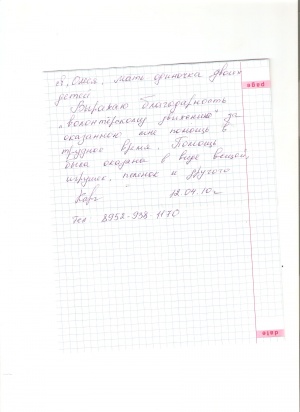 page
Я, Олся, мать одиночка двоих
детей
Выражаю благодарность
"волонтерскому движению" за
оказанною мне помощь в
трудное время. Помощь
была оказана в виде вещей,
игрушек, пелёнок и другого
12.04.10г
тел 8952-938-1170
date